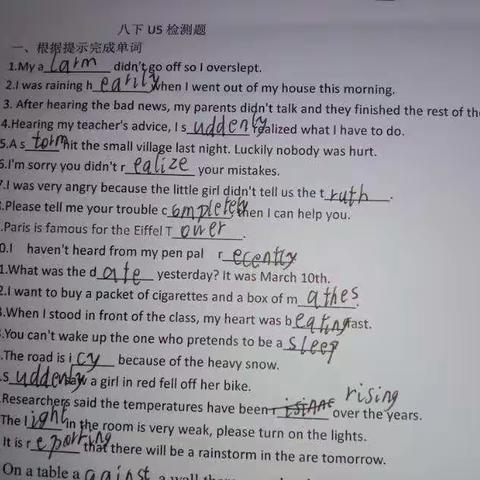 八下 U5 检测题
一、根据提示完成单词
1.My a larm didn't go off so I overslept.
2.I was raining h earily when I went out of my house this morning.
3. After hearing the bad news, my parents didn't talk and they finished the rest of the
4.Hearing my teacher's advice, I s uddenly realized what I have to do.
5.A s torm hit the small village last night. Luckily nobody was hurt.
6.I'm sorry you didn't r ealize your mistakes.
7.I was very angry because the little girl didn't tell us the t ruth .
.Please tell me your trouble c ompletely then I can help you.
.Paris is famous for the Eiffel T ower .
0.I haven't heard from my pen pal r ecently
1.What was the d ate yesterday? It was March 10th.
2.I want to buy a packet of cigarettes and a box of m athes .
3.When I stood in front of the class, my heart was b eating fast.
.You can't wake up the one who pretends to be a sleep
.The road is i cy because of the heavy snow.
.s uddenly saw a girl in red fell off her bike.
.Researchers said the temperatures have been r rising over the years.
The l ight in the room is very weak, please turn on the lights.
It is r eporting that there will be a rainstorm in the are tomorrow.
On a table a gainst a wall